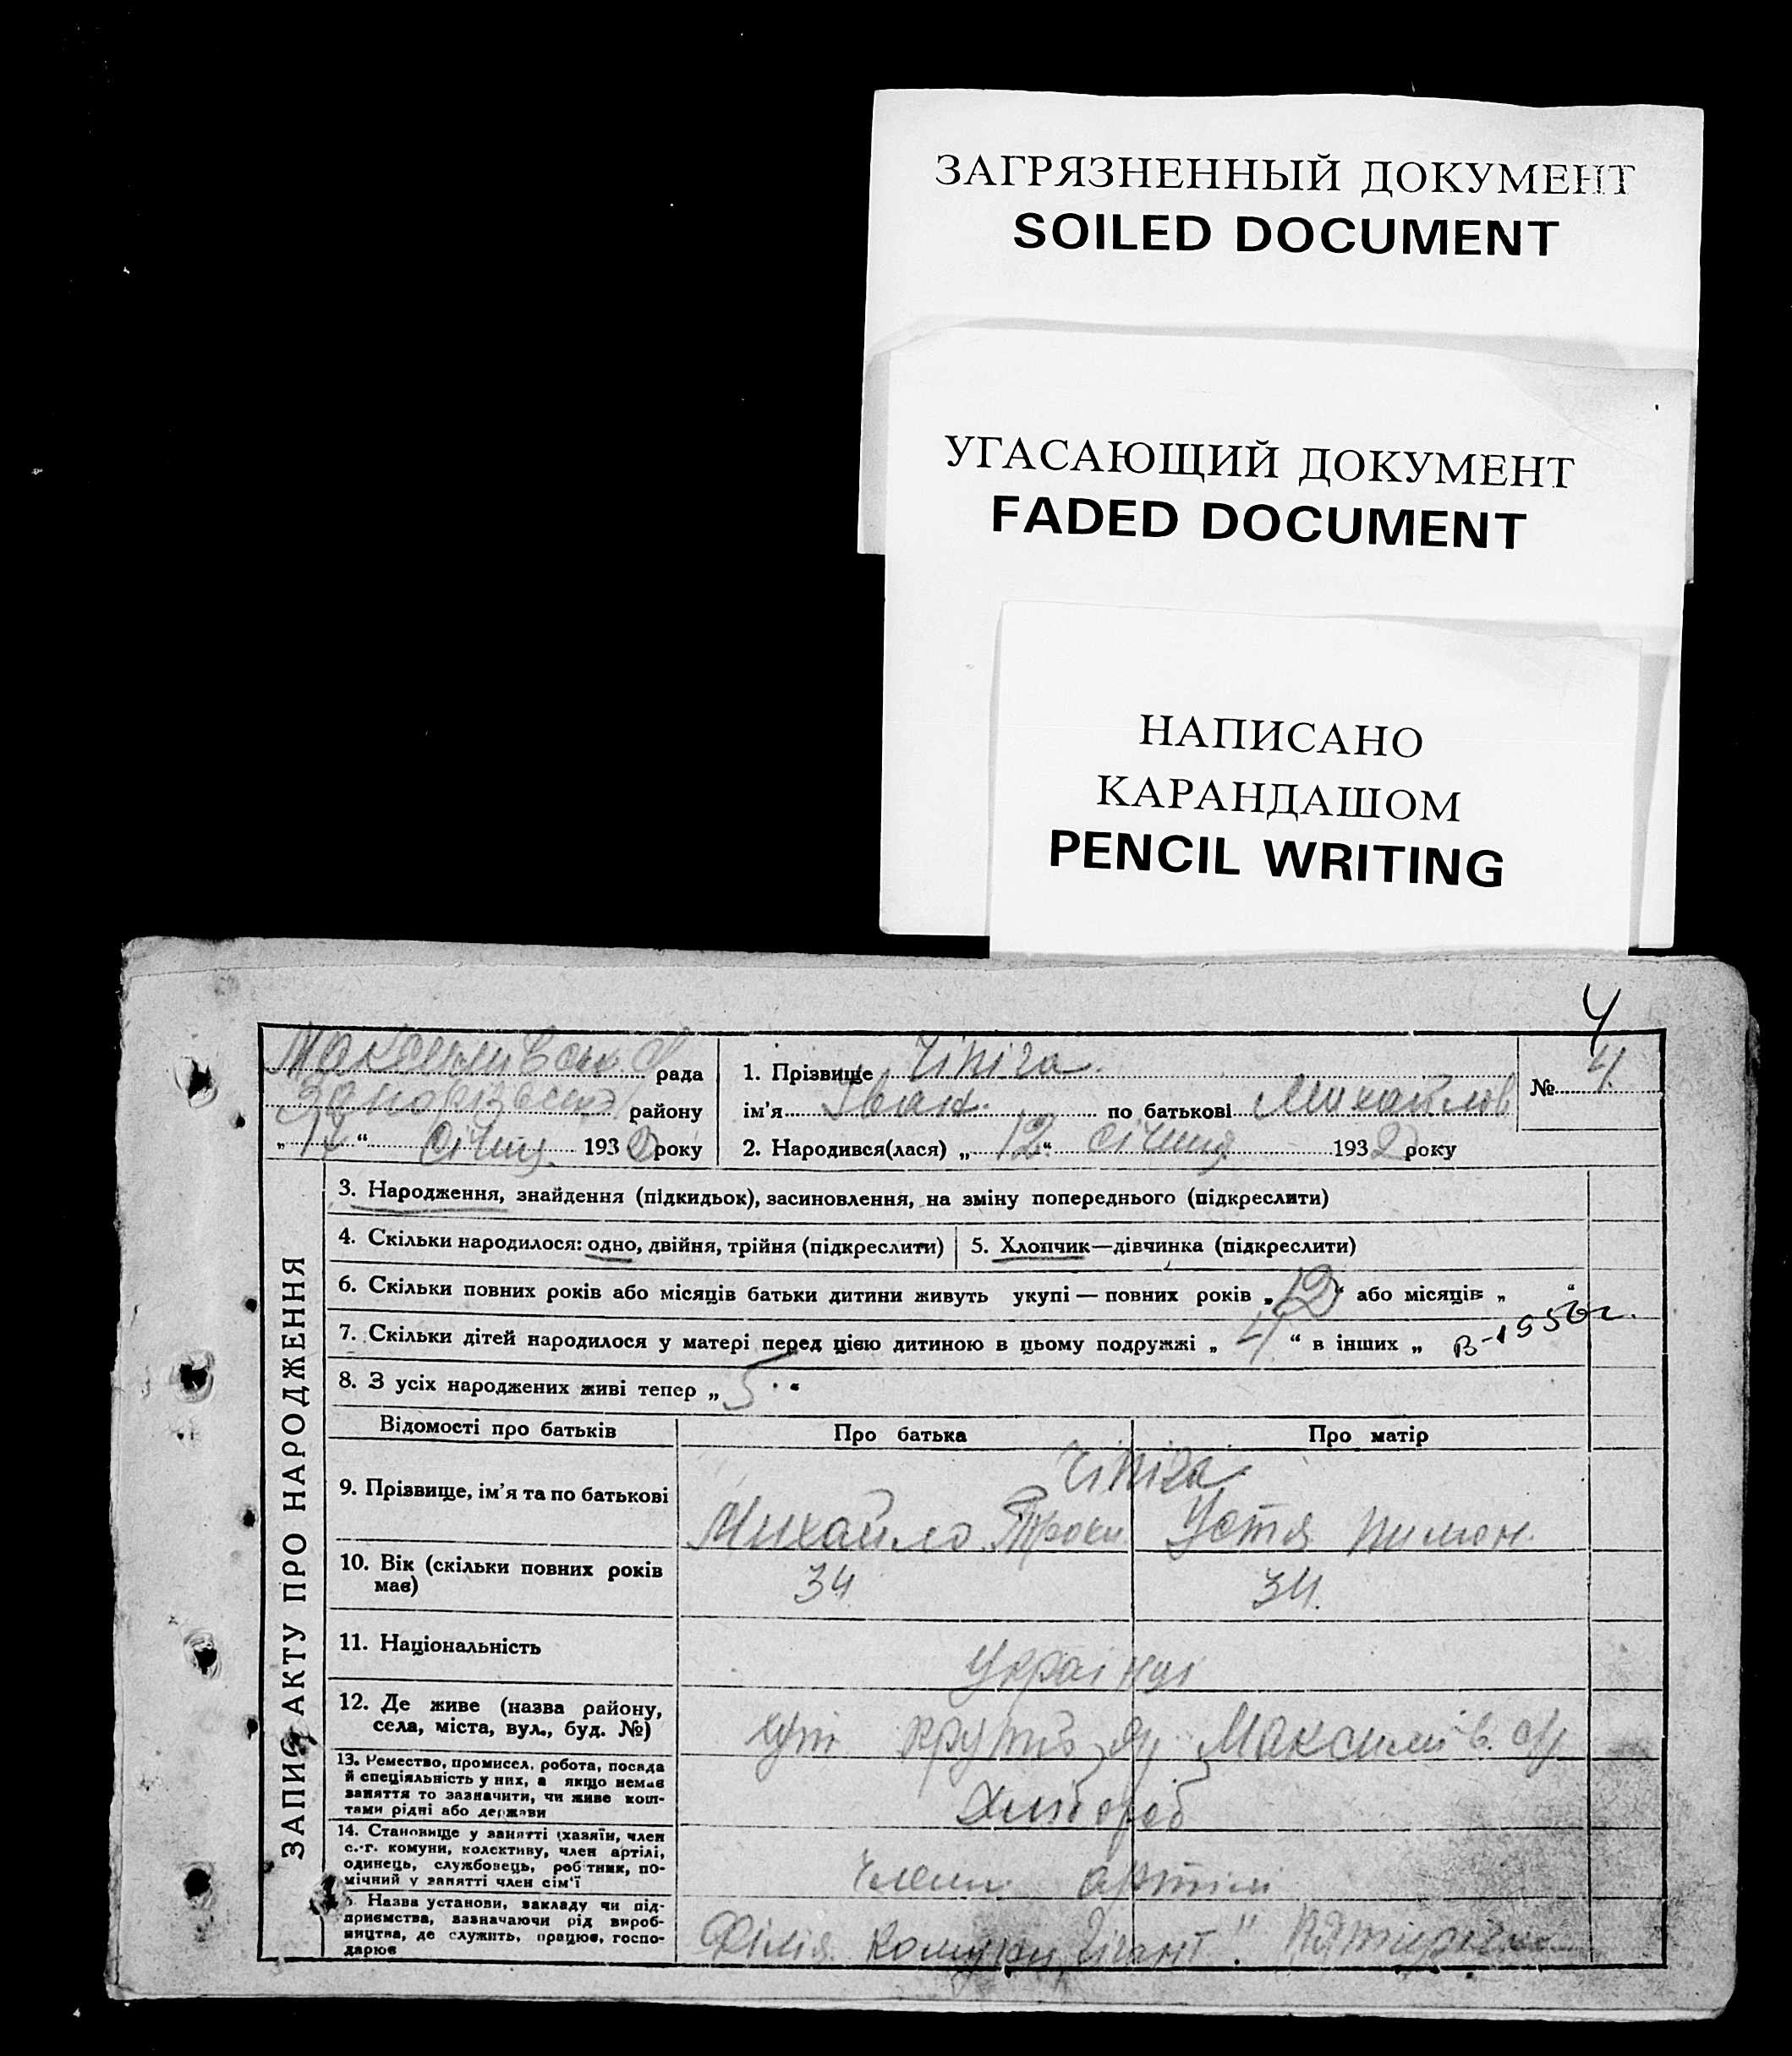 ЗАГРЯЗНЕННЫЙ ДОКУМЕНТ
SOILED DOCUMENT
УГАСАЮЩИЙ ДОКУМЕНТ
FADED DOCUMENT
НАПИСАНО
КАРАНДАШОМ
PENCIL WRITING
4
рада
району
„12“ Січня 1932 року
1. Прізвище Чіпіга
ім'я Іван по батькові Михайлов
2. Народився(лася) „12“ січня 1932 року
№ 4
ЗАПИС АКТУ ПРО НАРОДЖЕННЯ
3. Народження, знайдення (підкидьок), засиновлення, на зміну попереднього (підкреслити)
4. Скільки народилося: одно, двійня, трійня (підкреслити)
5. Хлопчик—дівчинка (підкреслити)
6. Скільки повних років або місяців батьки дитини живуть укупі — повних років „12“ або місяців „ “
7. Скільки дітей народилося у матері перед цією дитиною в цьому подружжі „4“ в інших „
8. З усіх народжених живі тепер „5“
Відомості про батьків
Про батька
Про матір
9. Прізвище, ім'я та по батькові
Чіпіга
Михайло Устя Пимон
10. Вік (скільки повних років
має)
34 34.
11. Національність
Українці
12. Де живе (назва району,
села, міста, вул., буд. №)
хут Максимів.
13. Ремество, промисел, робота, посада
й спеціяльність у них, а якщо немає
заняття то зазначити, чи живе кош-
тами рідні або держави
Хлібороб
14. Становище у занятті (хазяїн, член
с.-г. комуни, колективу, член артілі,
одинець, службовець, робітник, по-
мічний у занятті член сім'ї
члени артілі
15. Назва установи, закладу чи під-
приємства, зазначаючи рід вироб-
ництва, де служить, працює, госпо-
дарює
Філія комуни Гігант"